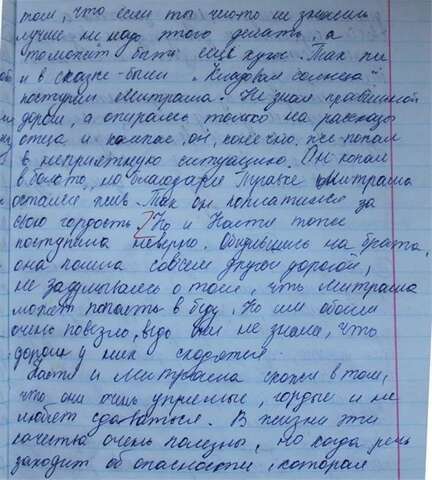 том, что если ты чисто не знаешь
лучше не надо этого делать, а
то может быть ещё хуже. Так же
и в сказке-были "Кладовая солнца"
поступил Митраша. Не зная правильной
дороги, а опираясь только на рассказы
отца и компас, он, конечно, же попал
в неприятную ситуацию. Он попал
в болото, но благодаря Травке Митраша
остался жив. Так он поплатился за
свою гордость. Но и Настя тоже
поступила неверно. Обидевшись на брата,
она пошла совсем другой дорогой,
не задумываясь о том, что Митраша
может попасть в беду. Но им обоим
очень повезло, ведь они не знали, что
дороги у них сходятся.
Настя и Митраша схожи в том,
что они очень упрямые, гордые и не
любят сдаваться. В жизни эти
качества очень полезны, но когда речь
заходит об опасности, которая